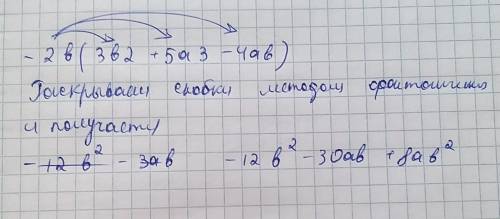 - 2в(3в2 +5а3 -4ав)
Раскрываем скобки методом фонтанчика
и получаем
-12в² - 3ав -12в² -30ав +8ав²